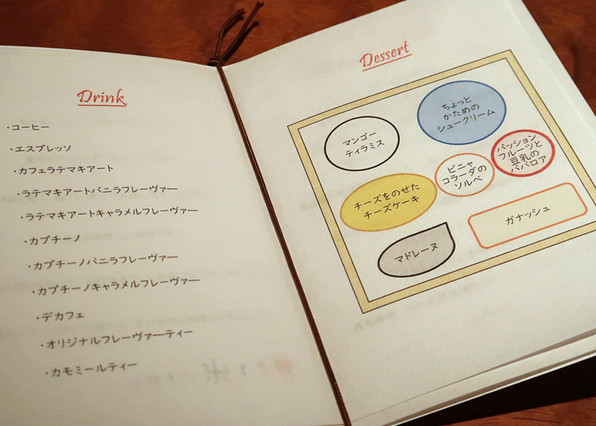 Drink
・コーヒー
・エスプレッソ
・カフェラテマキアート
・ラテマキアートバニラフレーヴァー
・ラテマキアートキャラメルフレーヴァー
・カプチーノ
・カプチーノバニラフレーヴァー
・カプチーノキャラメルフレーヴァー
・デカフェ
・オリジナルフレーヴァーティー
・カモミールティー
Dessert
マンゴー
ティラミス
ちょっと
かための
シュークリーム
パッション
フルーツと
豆乳の
ババロア
ピニャ
コラーダの
ソルベ
チーズをのせた
チーズケーキ
ガナッシュ
マドレーヌ